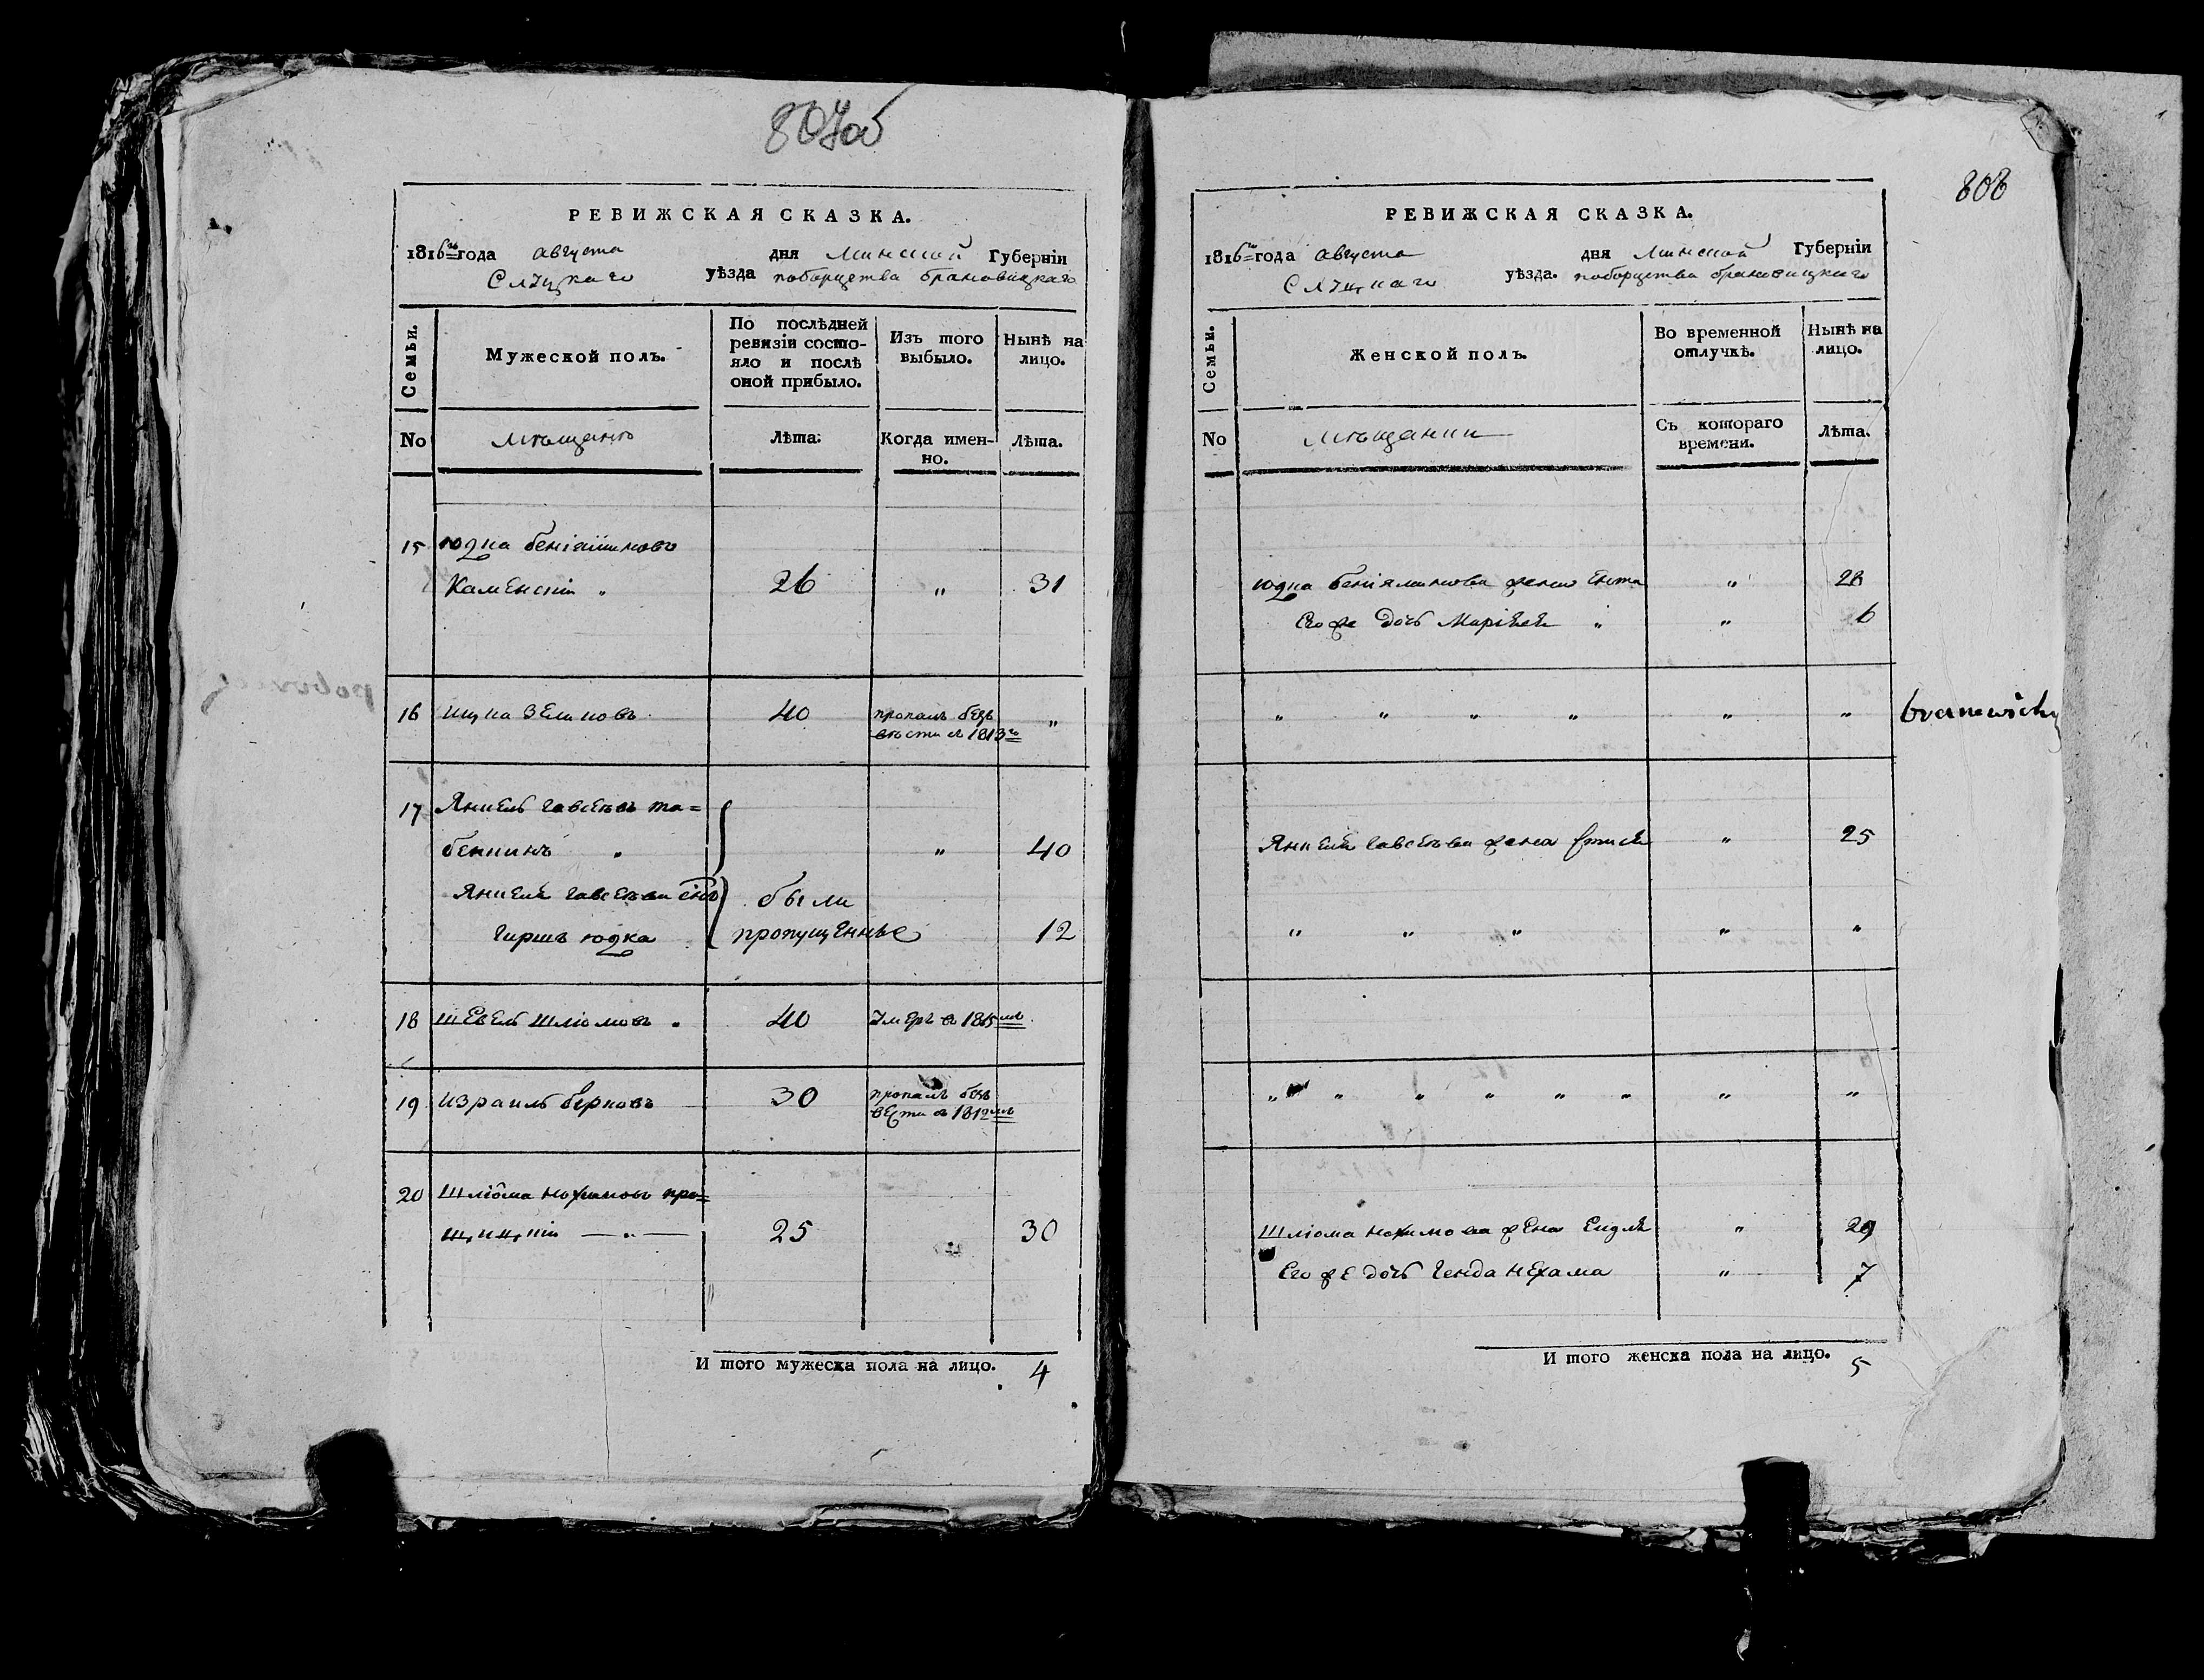 807об
РЕВИЖСКАЯ СКАЗКА.
1816го года августа дня Минской Губерніи
Слуцкаго уѣзда поборцетва брановицкаго
Семьи.
Мужеской полъ.
По послѣдней ревизіи состояло и послѣ оной прибыло.
Изъ того выбыло.
Нынѣ на лицо.
No
мѣщанъ
Лѣта:
Когда именно.
Лѣта.
15 юдка беніаминовъ
Каменскіи „ 26 „ 31
16 ицка Зеликовъ 40 пропалъ безъ вѣсти въ 1813го „
17 Янкель говсеевъ та=
бенкинъ „ „ 40
Янкеля говсеева снъ были
гиршъ юдка пропущенные 12
18 Шевель Шліомовъ 40 Умеръ въ 1815мъ
19 израиль берковъ 30 пропалъ безъ вести въ 1812мъ
20 Шліома нохимовъ
25 30
И того мужеска пола на лицо. 4
808
РЕВИЖСКАЯ СКАЗКА.
1816го года августа дня Минской Губерніи
Слуцкаго уѣзда. поборцетва брановицкаго
Семьи.
Женской полъ.
Во временной отлучкѣ.
Нынѣ на лицо.
No
мѣщанки
Съ котораго времени.
Лѣта.
юдка беніяминова жена Ента „ 28
Его же дочь „ „ 6
„ „ „ „ „ „
branewichy
Янкеля говсеева жена „ 25
„ „ „ „ „
„ „ „ „ „ „ „ „
Шліома нохимова жена Ейдля „ 29
Его же дочь генда нехама „ 7
И того женска пола на лицо. 5